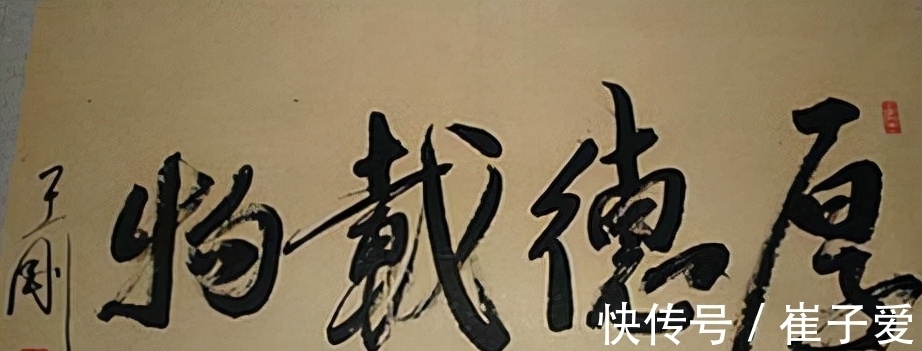 厚德載物
子刚
快传号 / 崔子爱